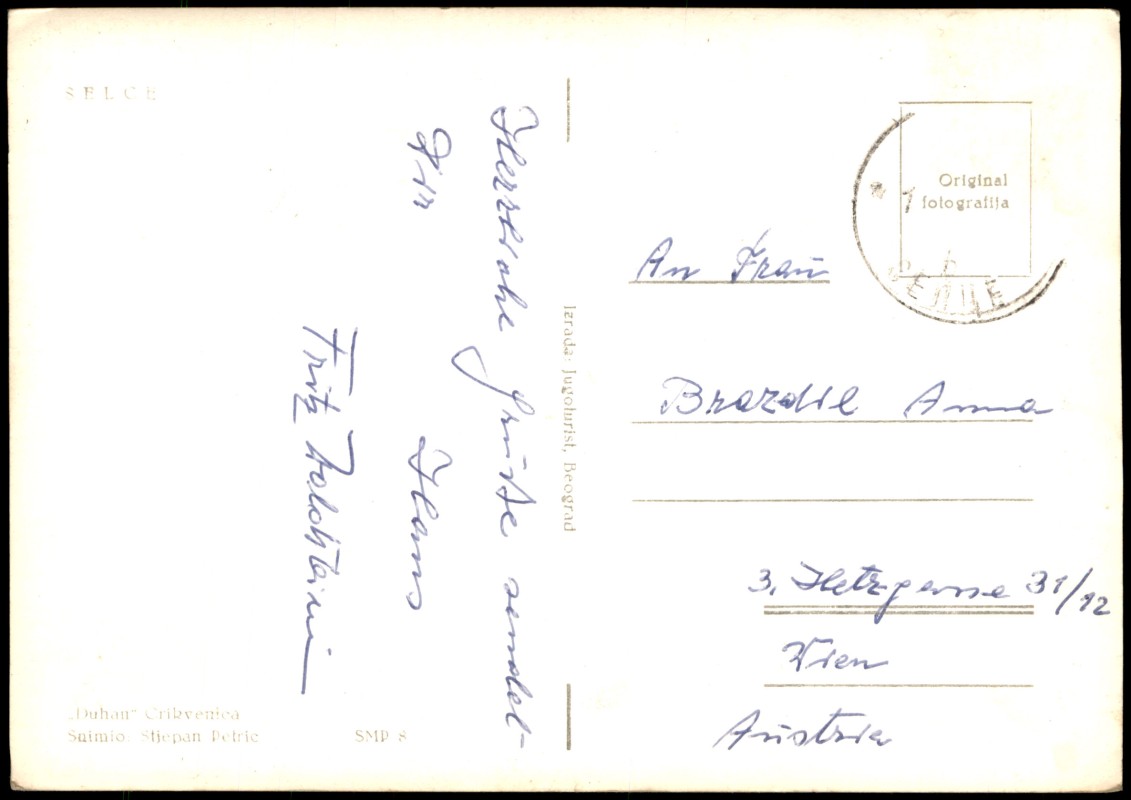 SELCE
Herzliche Grüße sendet
Dir
Hans
Fritz
Izrada: Jugoturist, Beograd
„Duhan“ Crikvenica
Snimio: Stjepan Petrić
SMP 8
Original
fotografija
СЕЛЦЕ
An Frau
Brazdil Anna
3. Hetzgasse 31/12
Wien
Austria